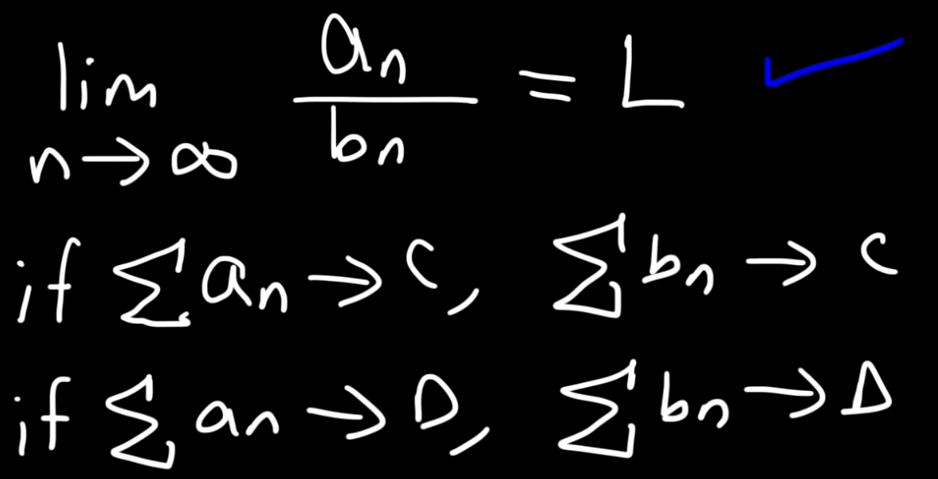 lim n→∞ an/bn = L
if ∑an → C, ∑bn → C
if ∑an → D, ∑bn → D